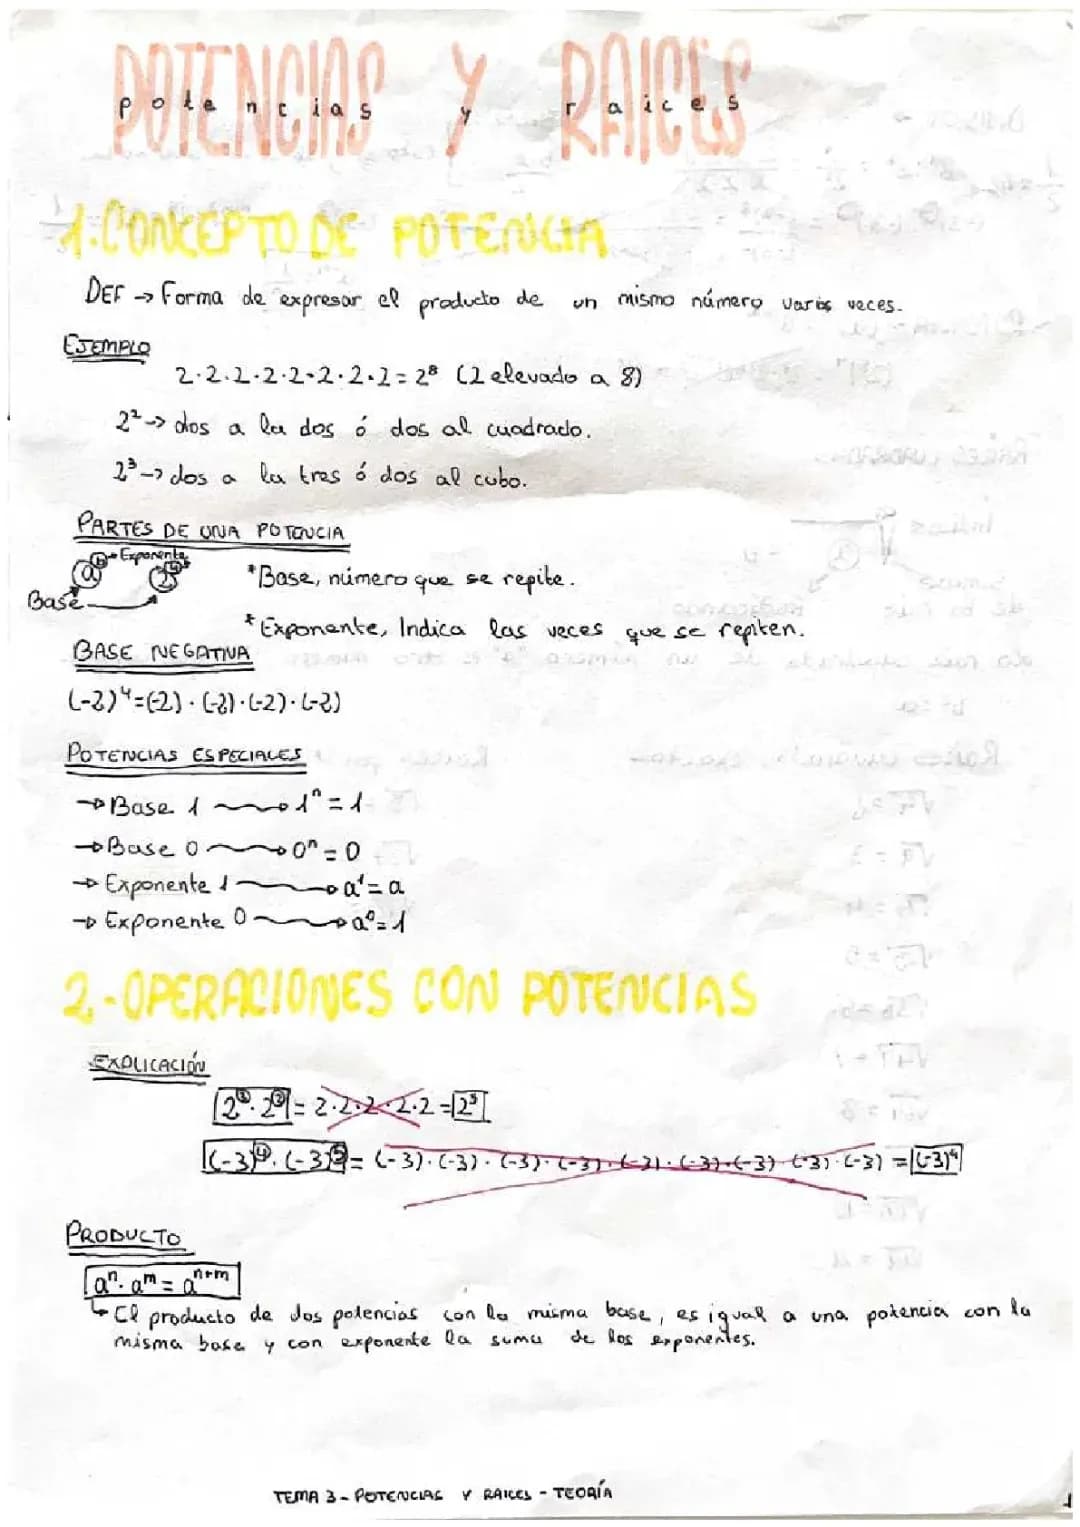 POTENCIAS Y RAICES
potencias y raices
1.CONCEPTO DE POTENCIA
DEF → Forma de expresar el producto de un mismo número varias veces.
EJEMPLO
2·2·2·2·2·2·2·2=2⁸ (2 elevado a 8)
2²→ dos a la dos ó dos al cuadrado.
2³→ dos a la tres ó dos al cubo.
PARTES DE UNA POTENCIA
Exponente
*Base, número que se repite.
Base
*Exponente, Indica las veces que se repiten.
BASE NEGATIVA
(-2)⁴=(-2)·(-2)·(-2)·(-2)
POTENCIAS ESPECIALES
→Base 1 → 1ⁿ=1
→Base 0 → 0ⁿ=0
→ Exponente 1 → a¹=a
→ Exponente 0 → a⁰=1
2.-OPERACIONES CON POTENCIAS
EXPLICACIÓN
= 2·2·2·2·2 =
= (-3)·(-3)·(-3)·(-3)·(-3)·(-3)·(-3)·(-3)·(-3) =
PRODUCTO
aⁿ·aᵐ= aⁿ⁺ᵐ
El producto de dos potencias con la misma base, es igual a una potencia con la
misma base y con exponente la suma de los exponentes.
TEMA 3 - POTENCIAS Y RAICES - TEORÍA
1